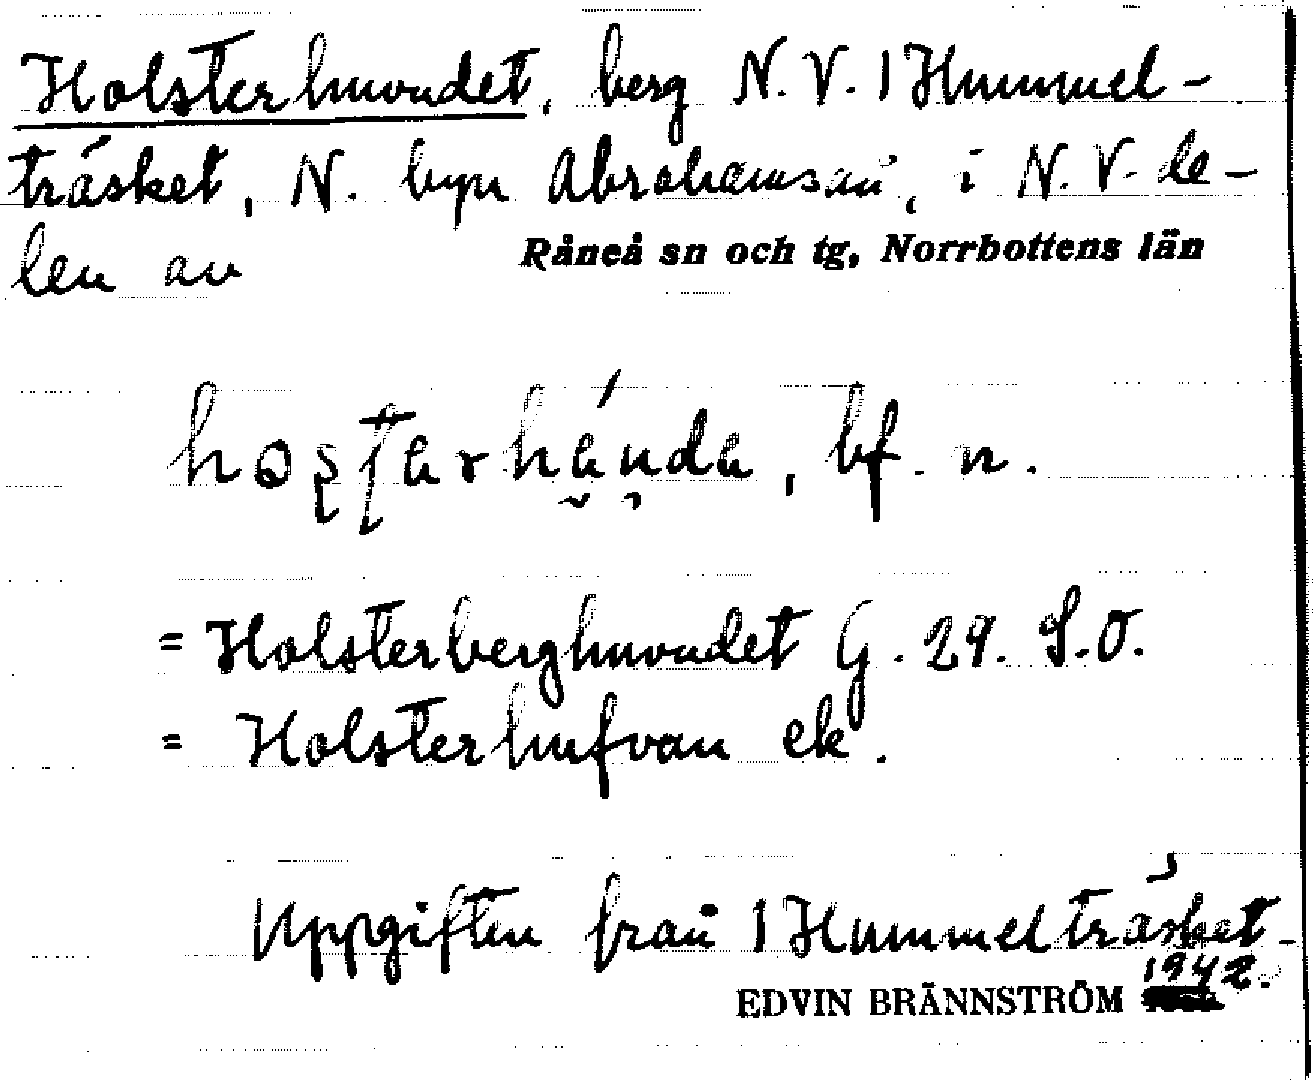 Holsterhuvudet, berg N.V. 1 Hummel-
träsket, N. byn Abrahamsån, i N.V. de-
len av Råneå sn och tg, Norrbottens län
bf. n.
= Holsterberghuvudet G. 29. S.O.
= Holsterhufvan ek.
Uppgiften från 1 Hummelträsket.
EDVIN BRÄNNSTRÖM 1942.